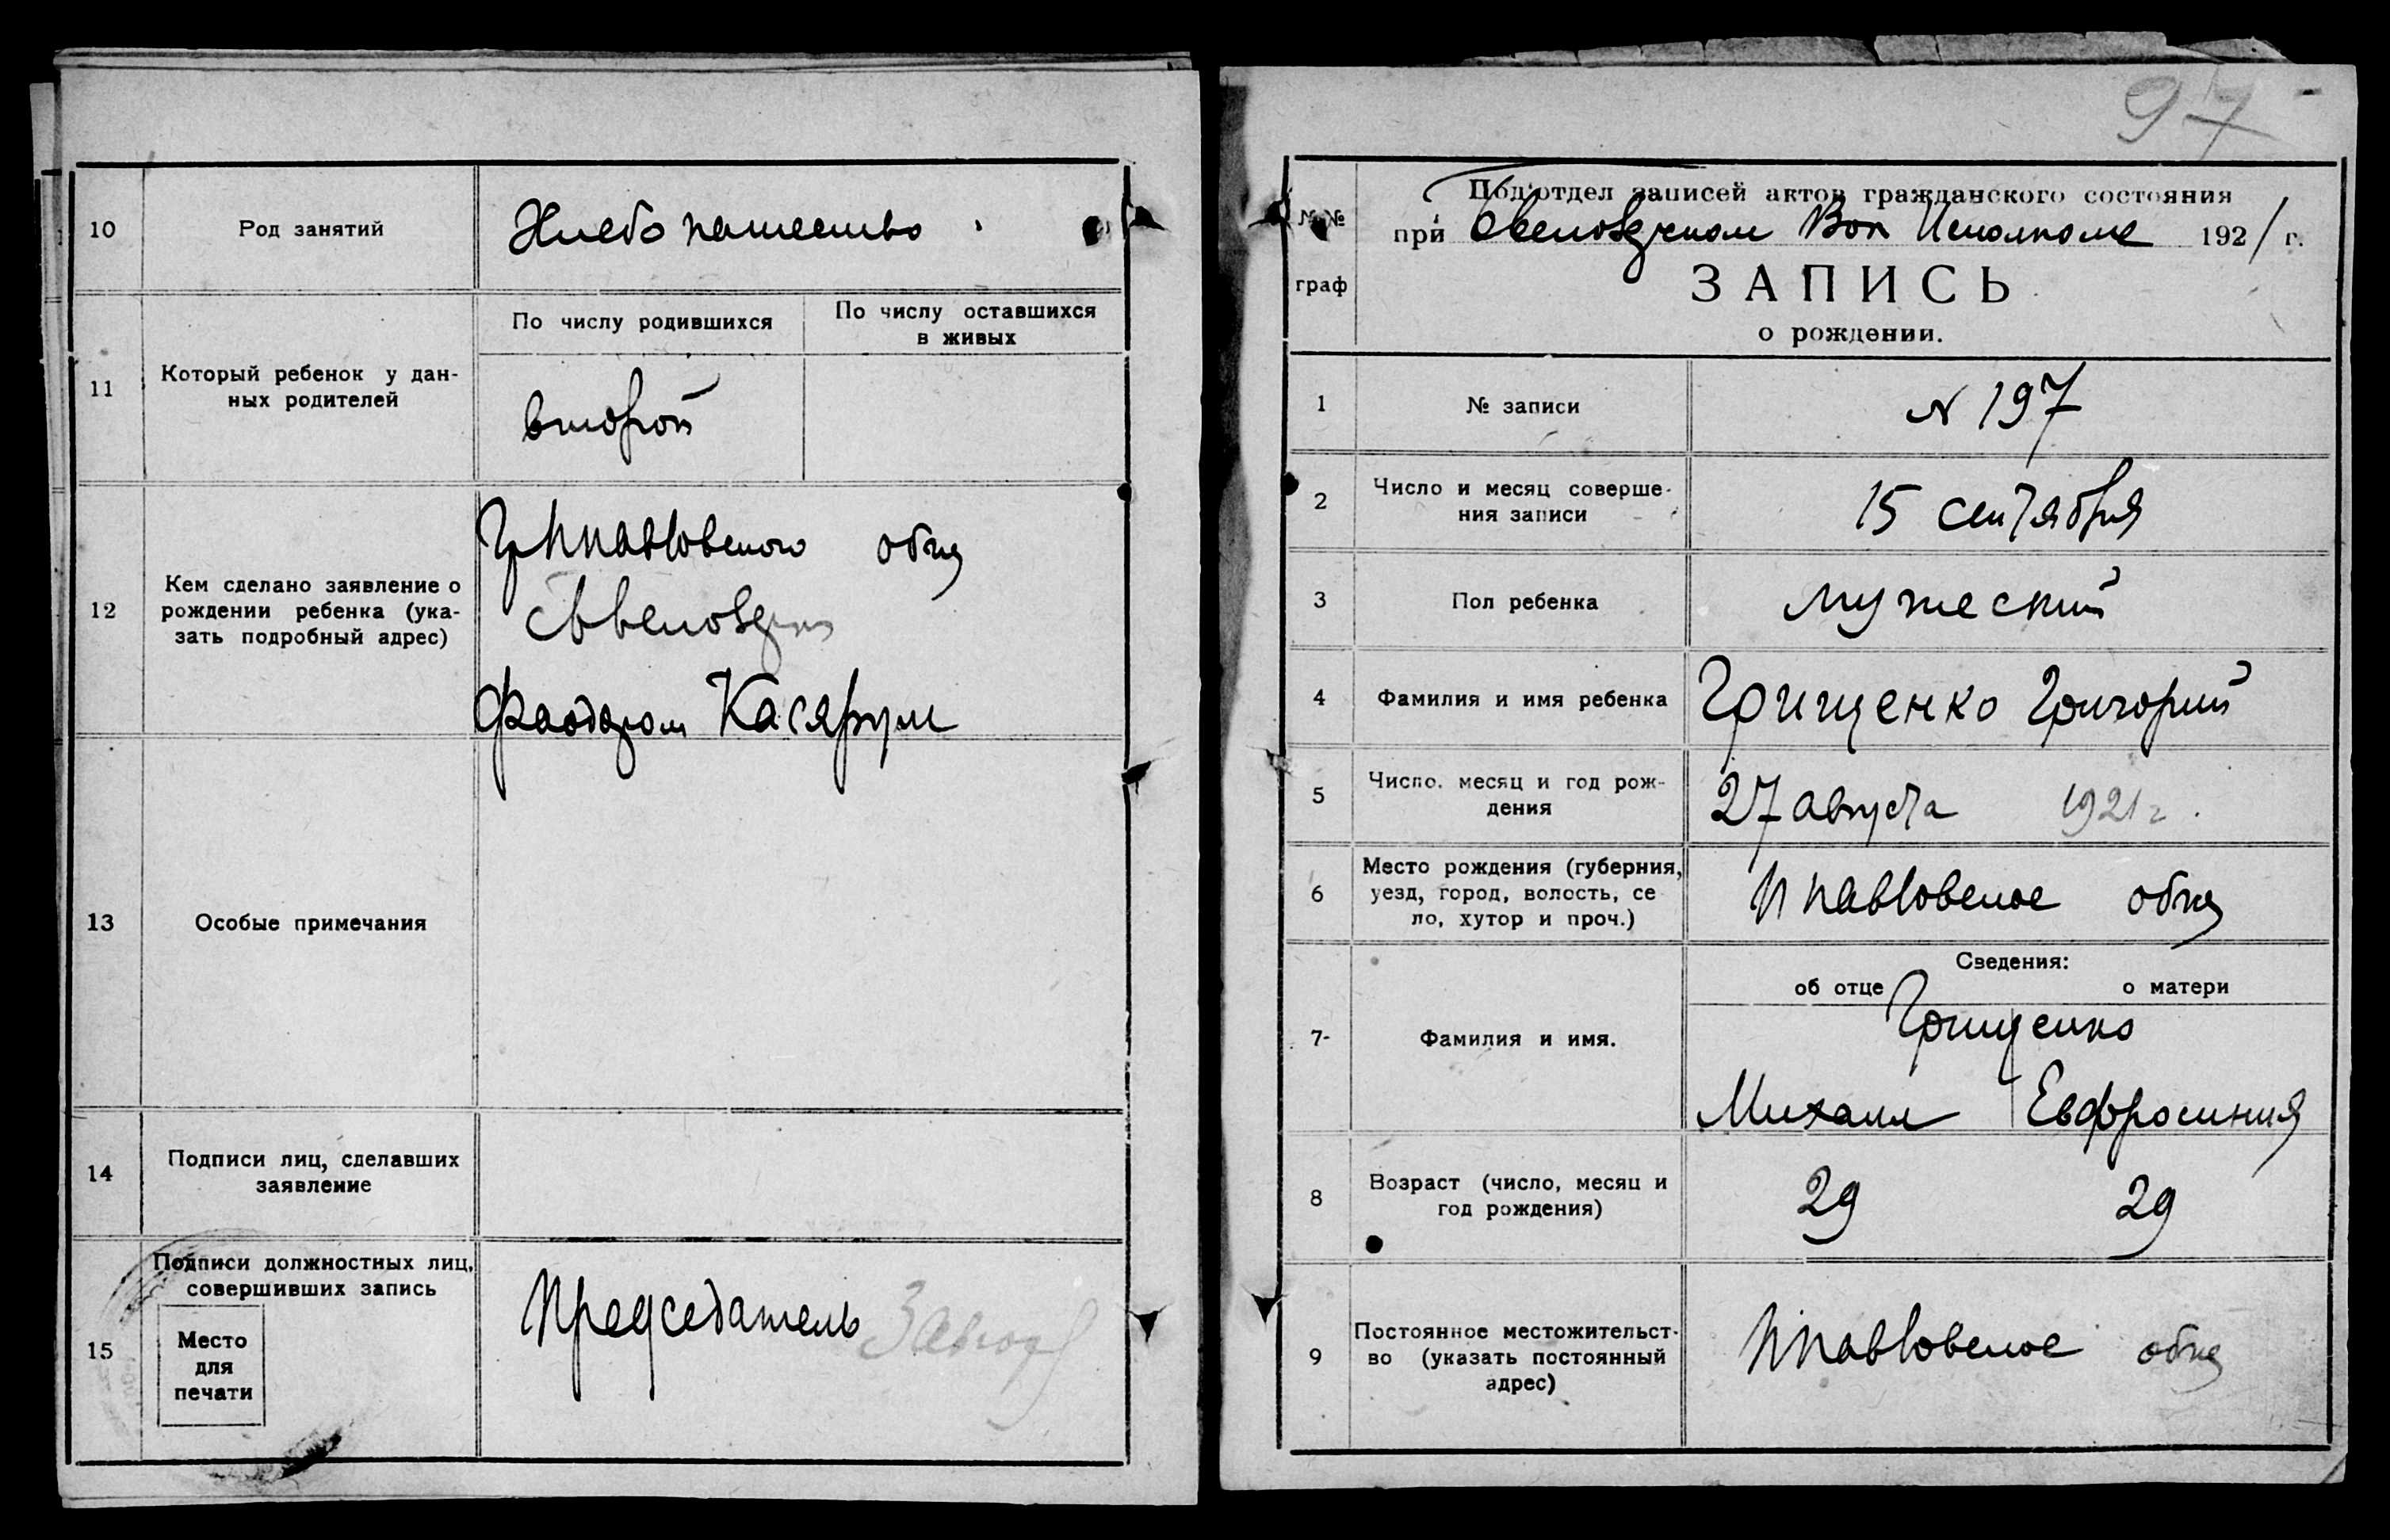 10
Род занятий
Хлебопашество
11
Который ребенок у дан-
ных родителей
По числу родившихся
По числу оставшихся
в живых
второй
12
Кем сделано заявление о
рождении ребенка (ука-
зать подробный адрес)
общ
13
Особые примечания
14
Подписи лиц, сделавших
заявление
15
Подписи должностных лиц,
совершивших запись
Место
для
печати
Председатель
97
№№
граф
Под'отдел записей актов гражданского состояния
при Вол Исполкоме 1921 г.
ЗАПИСЬ
о рождении.
1
№ записи
N 197
2
Число и месяц соверше-
ния записи
15 сентября
3
Пол ребенка
мужеский
4
Фамилия и имя ребенка
Грищенко Григорий
5
Число. месяц и год рож-
дения
27 августа 1921 г.
6
Место рождения (губерния,
уезд, город, волость, се
ло, хутор и проч.)
Ппавловское общ
Сведения:
об отце
о матери
7-
Фамилия и имя.
Грищенко
Михаил Евфросиния
8
Возраст (число, месяц и
год рождения)
29 29
9
Постоянное местожительст-
во (указать постоянный
адрес)
Ппавловское общ